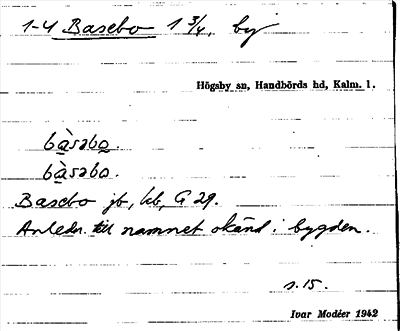 1-4 Basebo 1 3/4, by
Högsby sn, Handbörds hd, Kalm. l.
bàsəbo.
bàsəbo.
Basebo jb, kb, G 29.
Anledn. till namnet okänd i bygden.
s. 15.
Ivar Modéer 1942